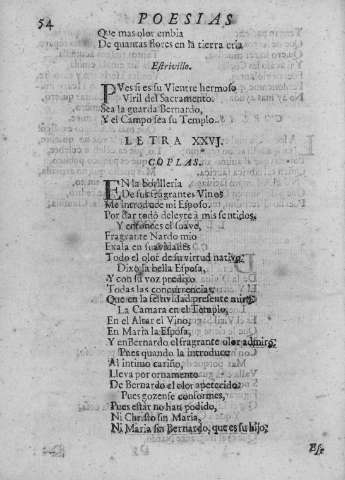 54 POESIAS
Que mas olor embia
De quantas flores en la tierra cria
Estrivillo.
PVes si es su Vientre hermoso
Viril del Sacramento.
Sea la guarda Bernardo,
Y el Campo sea su Templo.
LETRA XXVJ.
COPLAS.
EN la botilleria
De sus fragrantes Vinos
Me introduce mi Esposo.
Por dar todo deleyte a mis sentidos,
Y entonces el suave,
Fragrante Nardo mio
Exala en suavidades
Todo el olor de su virtud nativo
Dixo la bella Esposa,
Y con su voz predixo
Todas las concurrencias,
Que en la festividad presente miro;
La Camara en el Templo,
En el Altar el Vino,
En Maria la Esposa,
Y en Bernardo el fragrante olor admiro;
Pues quando la introduce
Al intimo cariño,
Lleva por ornamento
De Bernardo el olor apetecido:
Pues gozense conformes,
Pues estàr no han podido,
Ni Christo sin Maria,
Ni Maria sin Bernardo, que es su hijo;
Es-